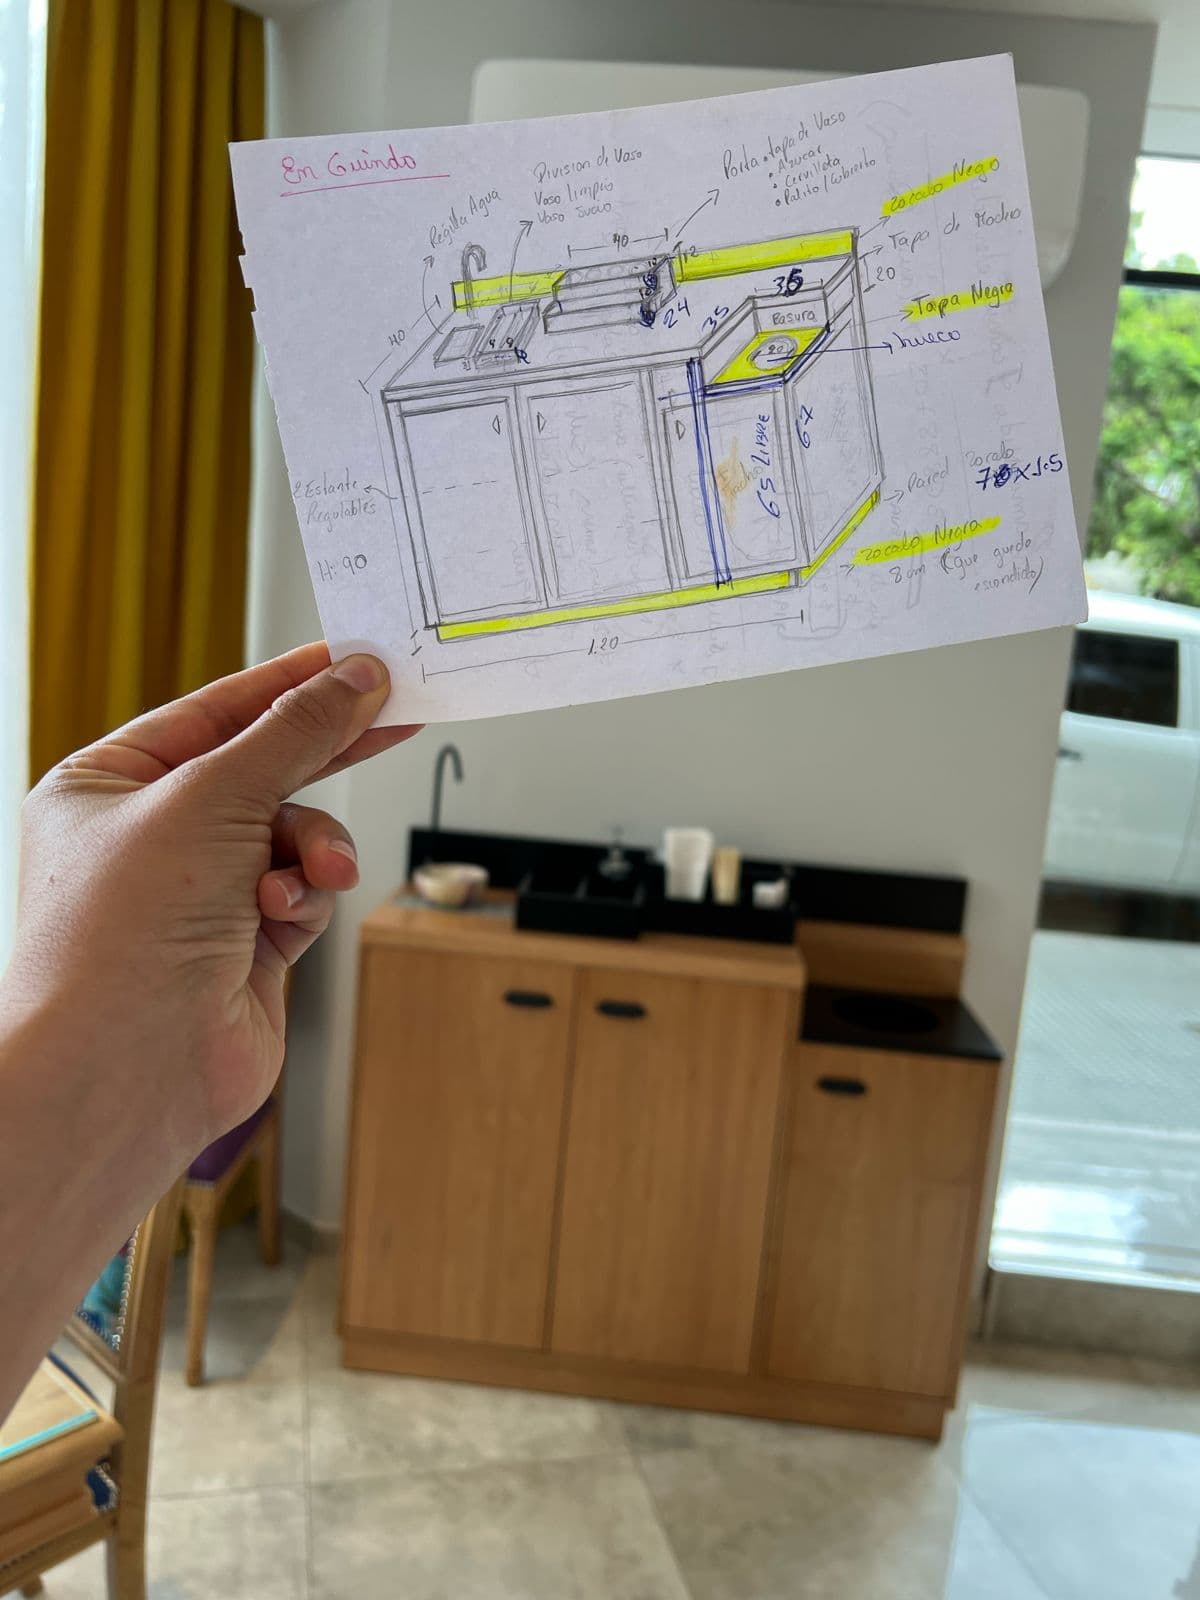 En Guindo
Regilla Agua
Division de Vaso
Vaso limpio
Vaso Sucio
Porta • tapa de Vaso
• Azucar
• Servilleta
• Palito / Cubierto
Zocalo Nego
Tapa de Madera
20
Tapa Negra
hueco
40
12
24
35
36
Basura
20
40
65 LIBRE
67
2 Estante
Regulables
H: 90
Pared
zocalo
Zocalo Negra
8 cm (que quede
escondido)
1.20